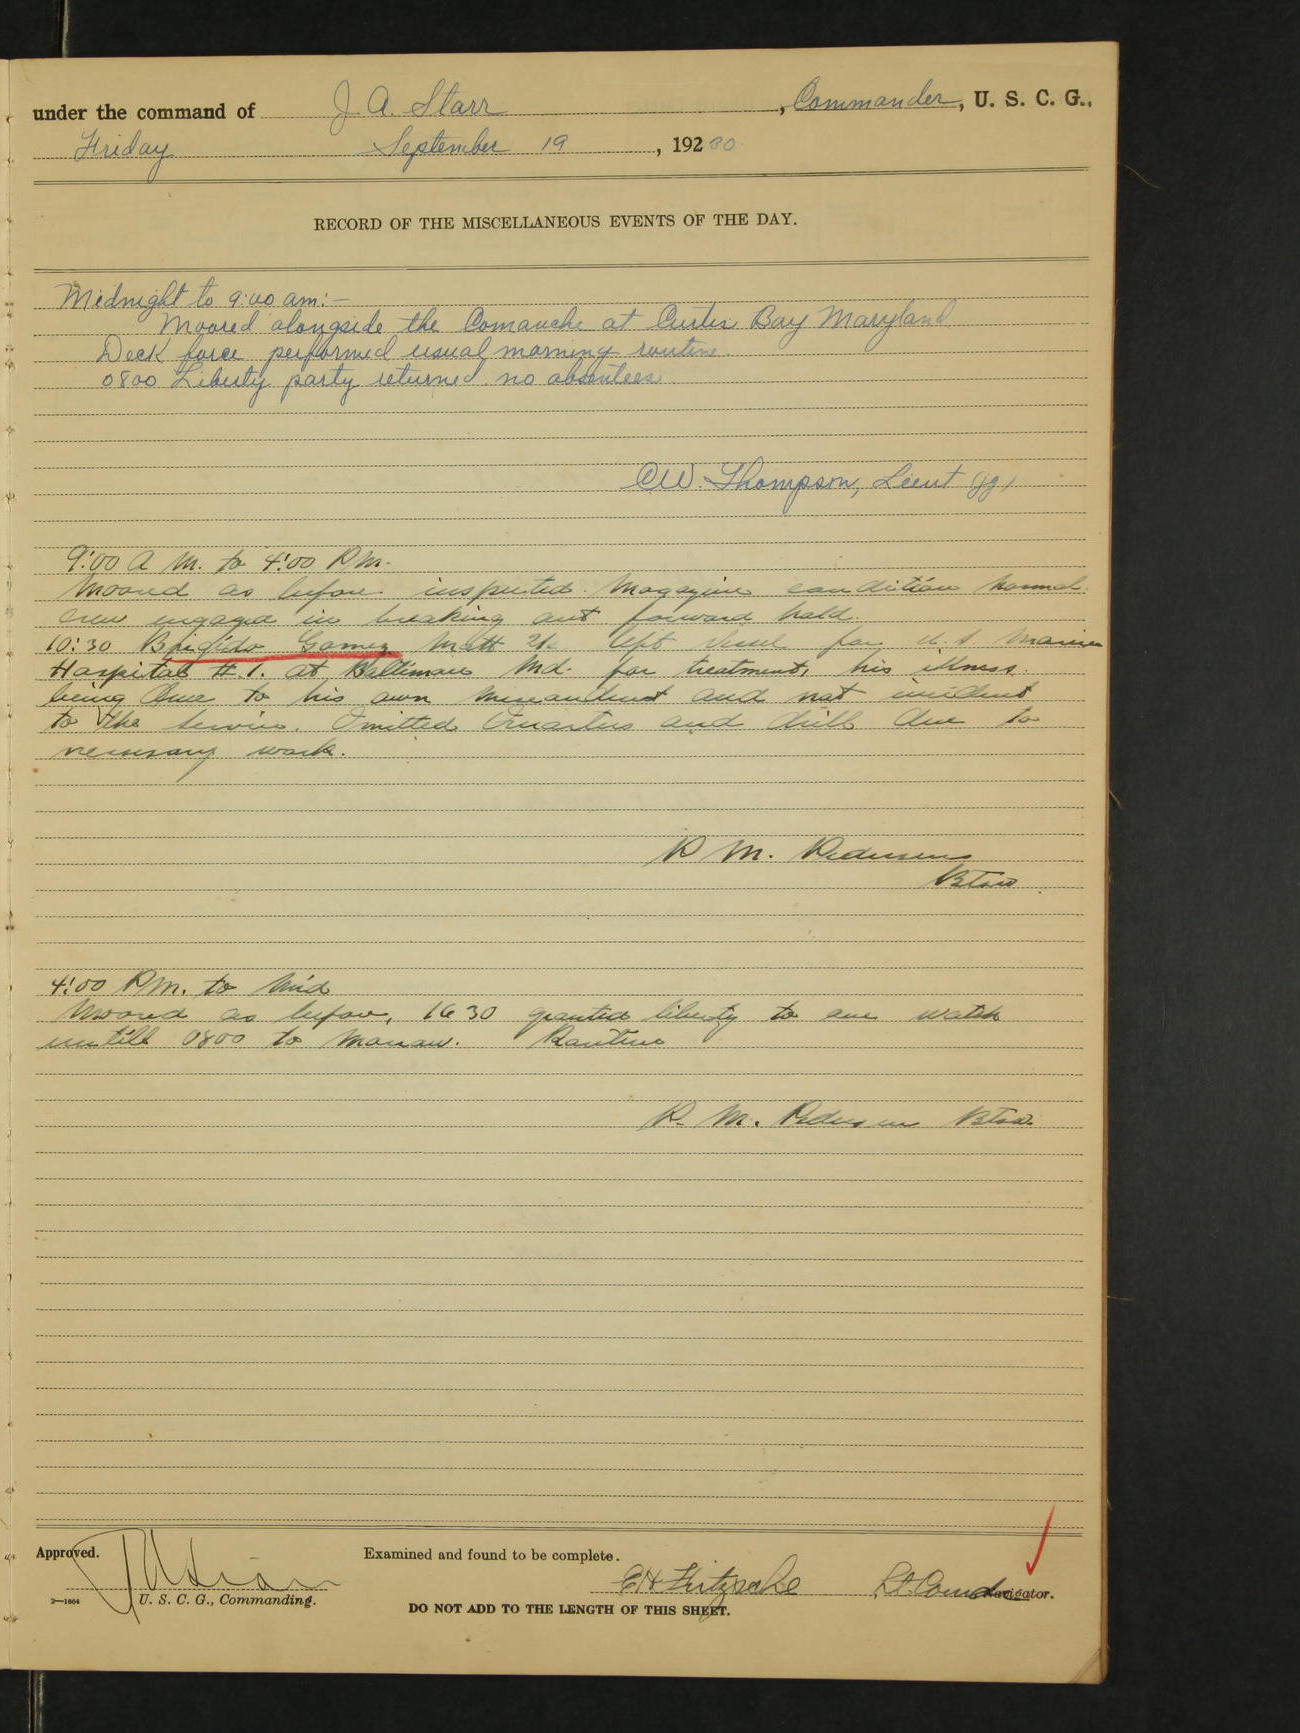 under the command of J. A. Starr, Commander, U. S. C. G.,
Friday September 19, 19230
RECORD OF THE MISCELLANEOUS EVENTS OF THE DAY.
Midnight to 9:00 am:-
Moored alongside the Comanche at Curtis Bay Maryland
Deck force performed usual morning routine.
0800 Liberty party returned no absentees
CW. Thompson, Lieut (jg)
9:00 A M. to 4:00 P.M.
Moored as before inspected Magazine condition normal
crew engaged in breaking out forward hold.
10:30 Brigido Gomez Matt 2c left vessel for U.S Marine
Hospital #.1. at Baltimore Md. for treatment, his illness
being due to his own misconduct and not incident
to the service. Omitted Quarters and drill due to
necessary work.
R M. Pedersen
Btsw.
4:00 P.M. to Mid
Moored as before, 1630 granted liberty to one watch
untill 0800 to morrow. Routine
R. M. Pedersen Btsw.
Approved.
Examined and found to be complete.
U. S. C. G., Commanding.
E H Fritzsche Lt. Comdr Navigator.
2—1664
DO NOT ADD TO THE LENGTH OF THIS SHEET.